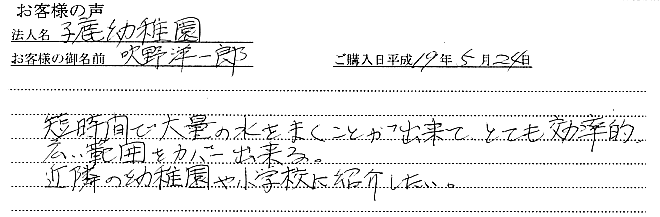 お客様の声
法人名 子鹿幼稚園
お客様の御名前 吹野洋一郎 ご購入日平成19年5月24日
短時間で大量の水をまくことが出来て とても効率的。
広い範囲をカバー出来る。
近隣の幼稚園や小学校に紹介したい。